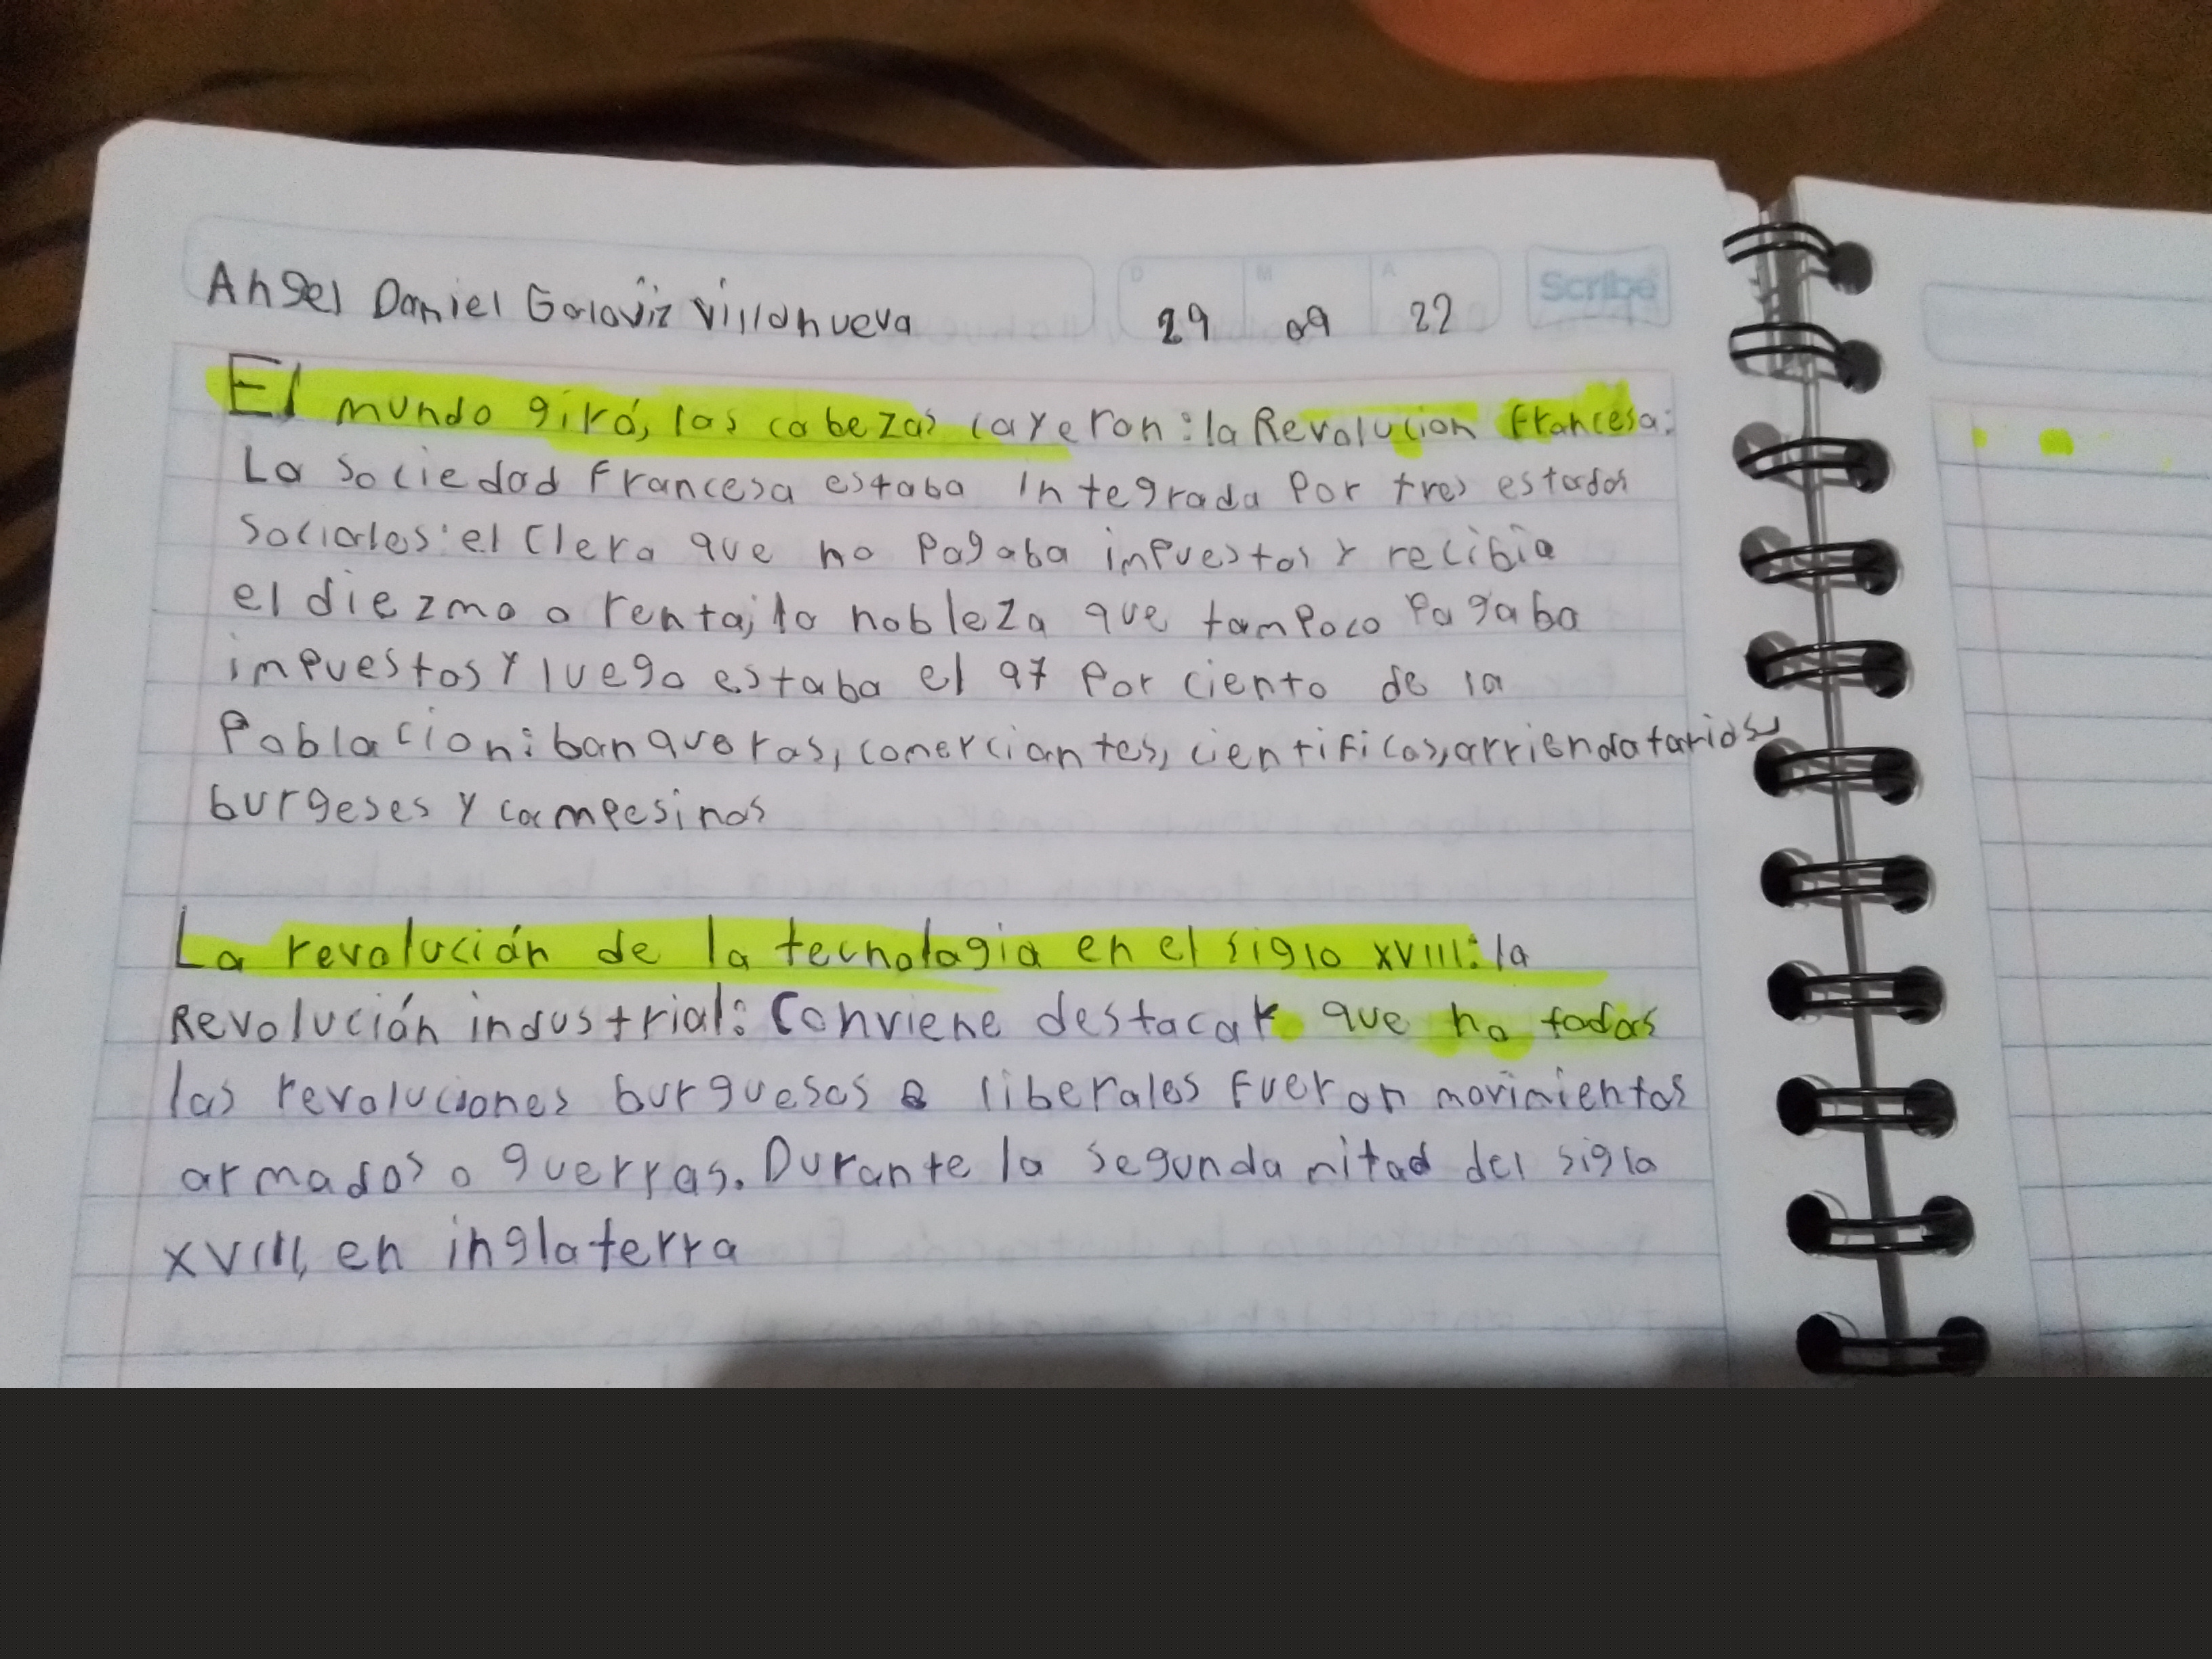 Angel Daniel Galaviz Villanueva
D M A
29 09 22
Scribe
El mundo giró, las cabezas cayeron: la Revolucion Francesa:
La sociedad Francesa estaba integrada por tres estados
sociales: el clero que no pagaba impuestos y recibia
el diezmo o renta, la nobleza que tampoco pagaba
impuestos y luego estaba el 97 por ciento de la
poblacion: banqueros, comerciantes, cientificos, arriendatarios
burgeses y campesinos
La revolución de la tecnologia en el siglo XVIII: la
Revolución industrial: Conviene destacar que no todas
las revoluciones burguesas o liberales fueron movimientos
armados o guerras. Durante la segunda mitad del siglo
XVIII, en inglaterra